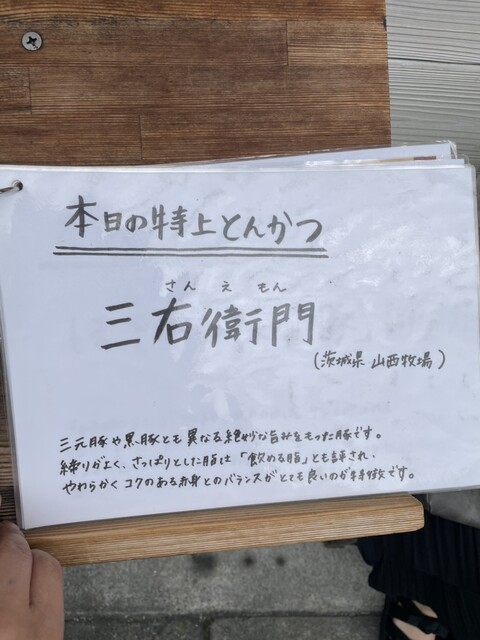 本日の特上とんかつ
さん え もん
三右衛門
(茨城県 山西牧場)
三元豚や黒豚とも異なる絶妙な旨みをもった豚です。
締りがよく、さっぱりとした脂は「飲める脂」とも評され、
やわらかくコクのある赤身とのバランスがとても良いのが特徴です。